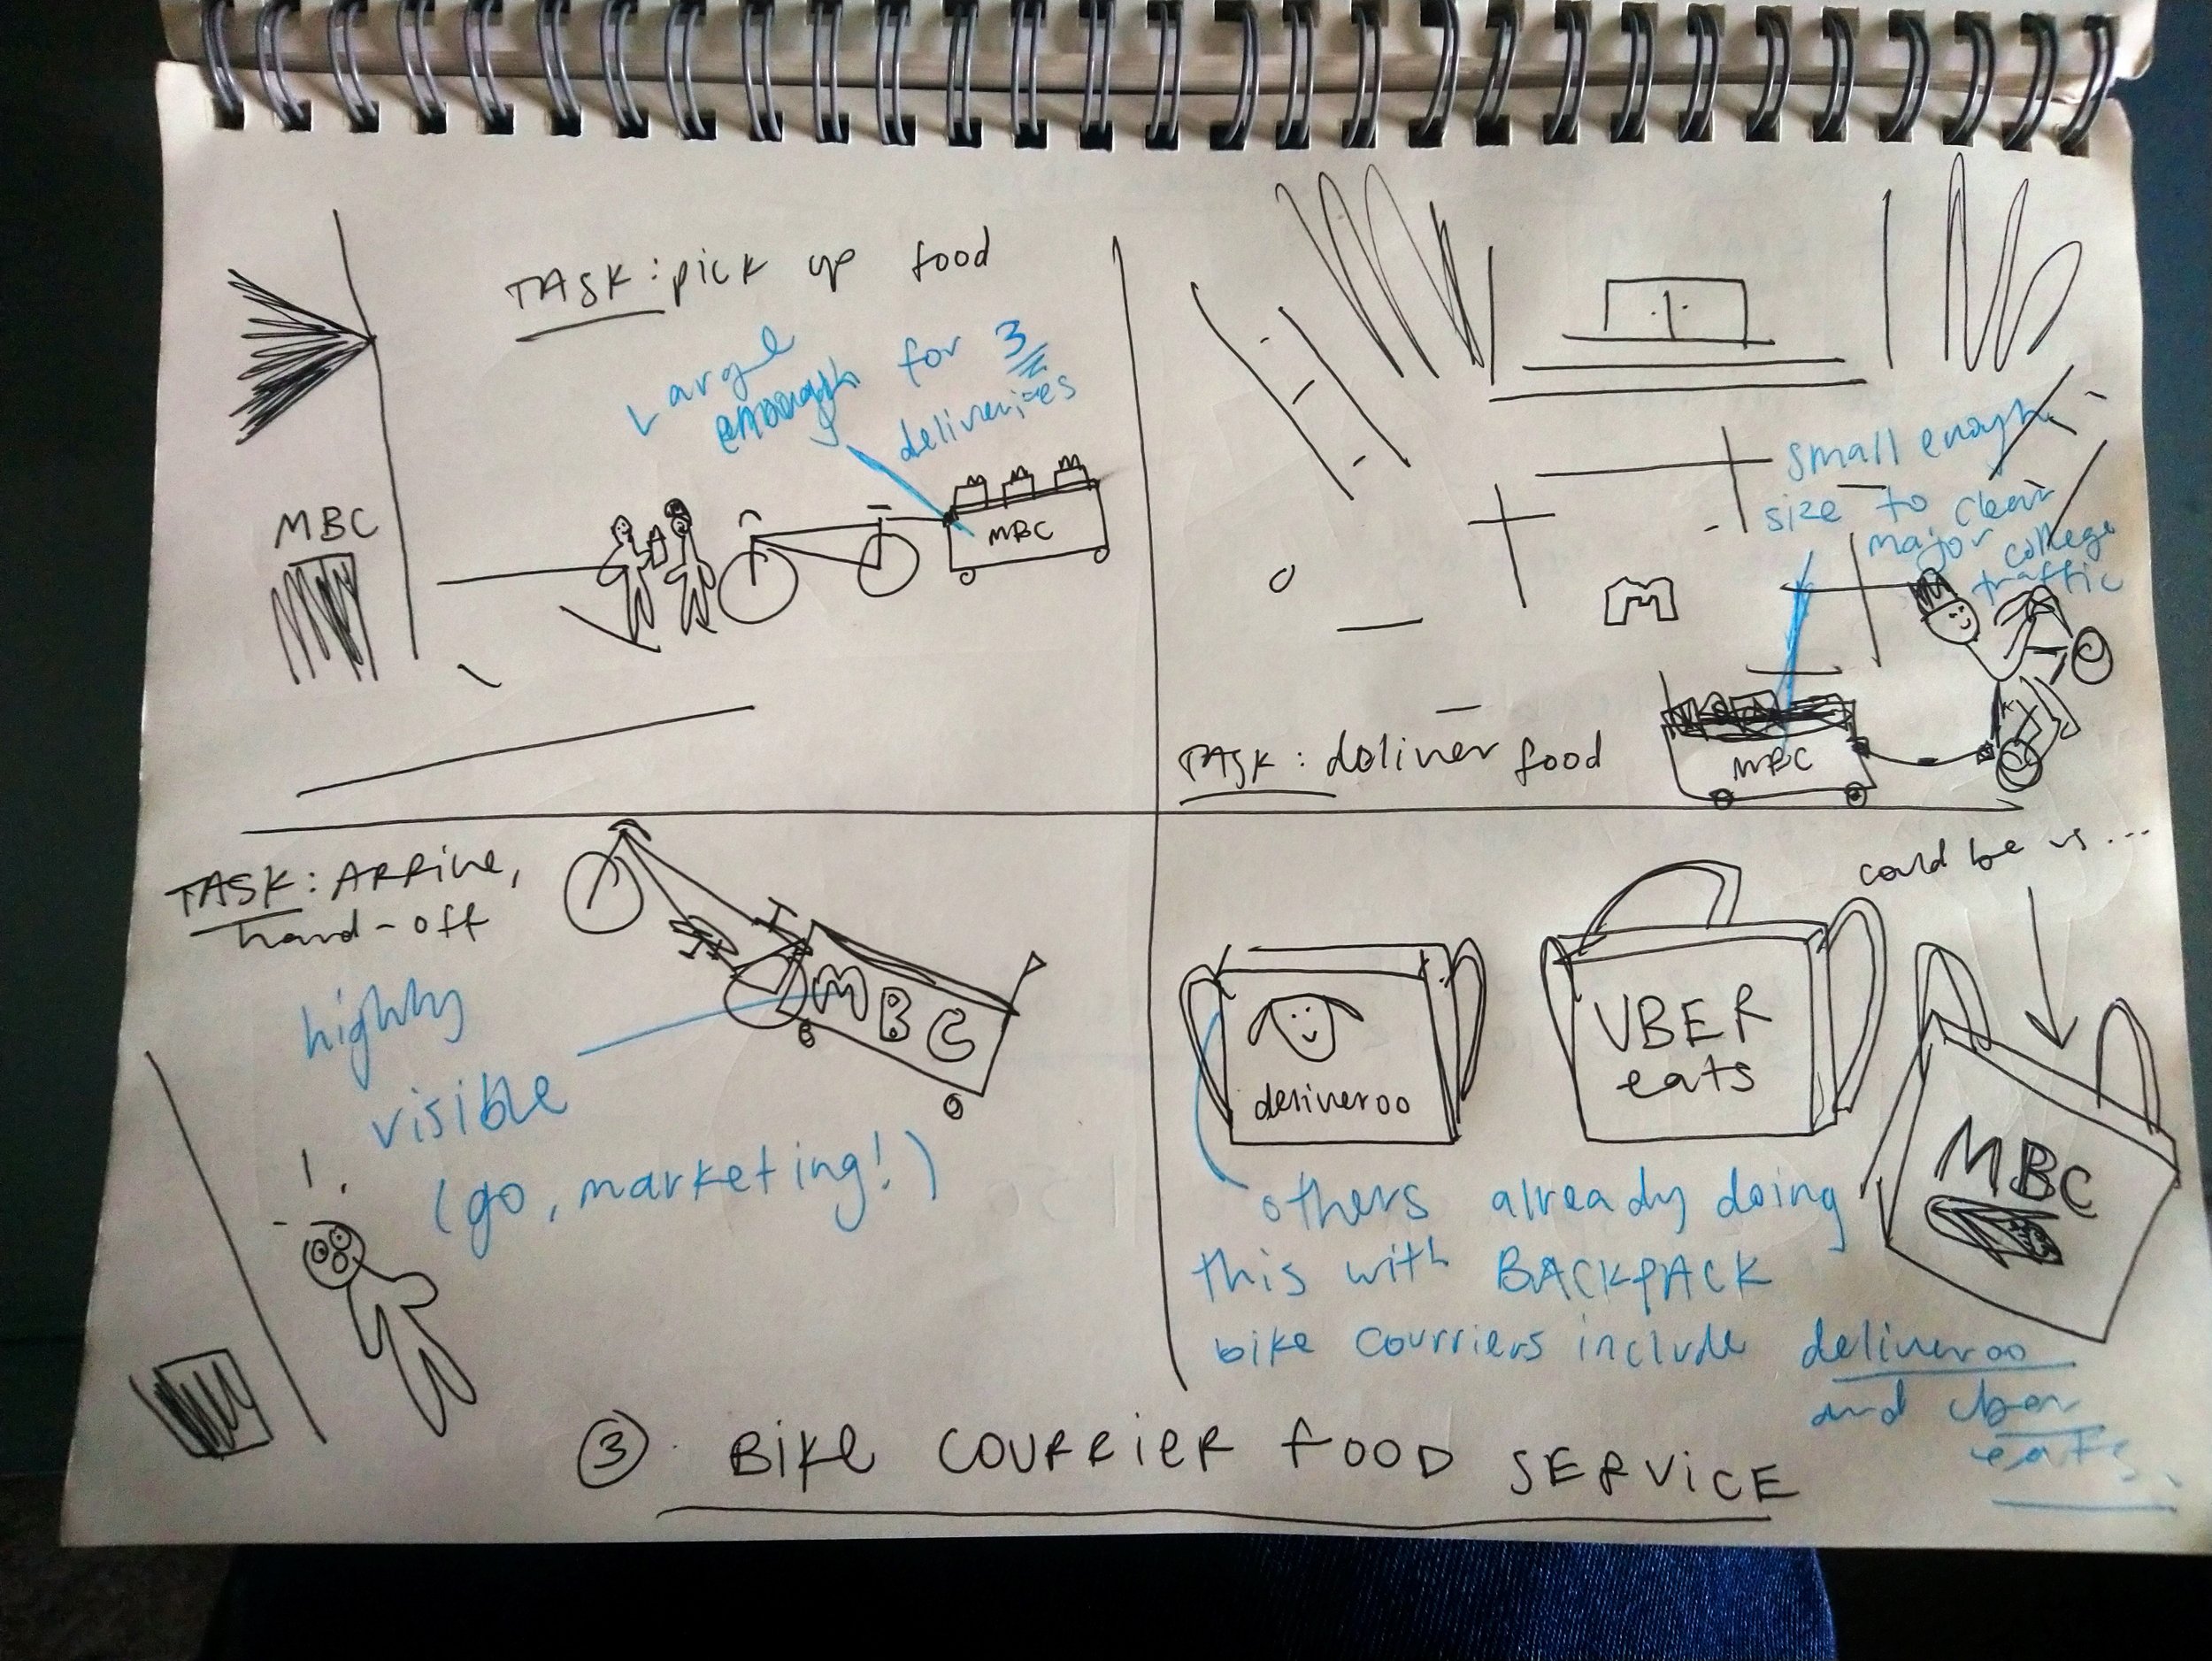 TASK: pick up food
Large
enough for 3
deliveries
MBC
MBC
small enough
size to clear
major college
traffic
M
TASK: deliver food
MBC
TASK: ARRive,
hand-off
MBC
highly
visible
(go, marketing!)
!
could be us...
deliveroo
UBER
eats
MBC
others already doing
this with BACKPACK
bike courriers include deliveroo
and uber
eats.
③ Bike COURRieR fOOD SERViCE